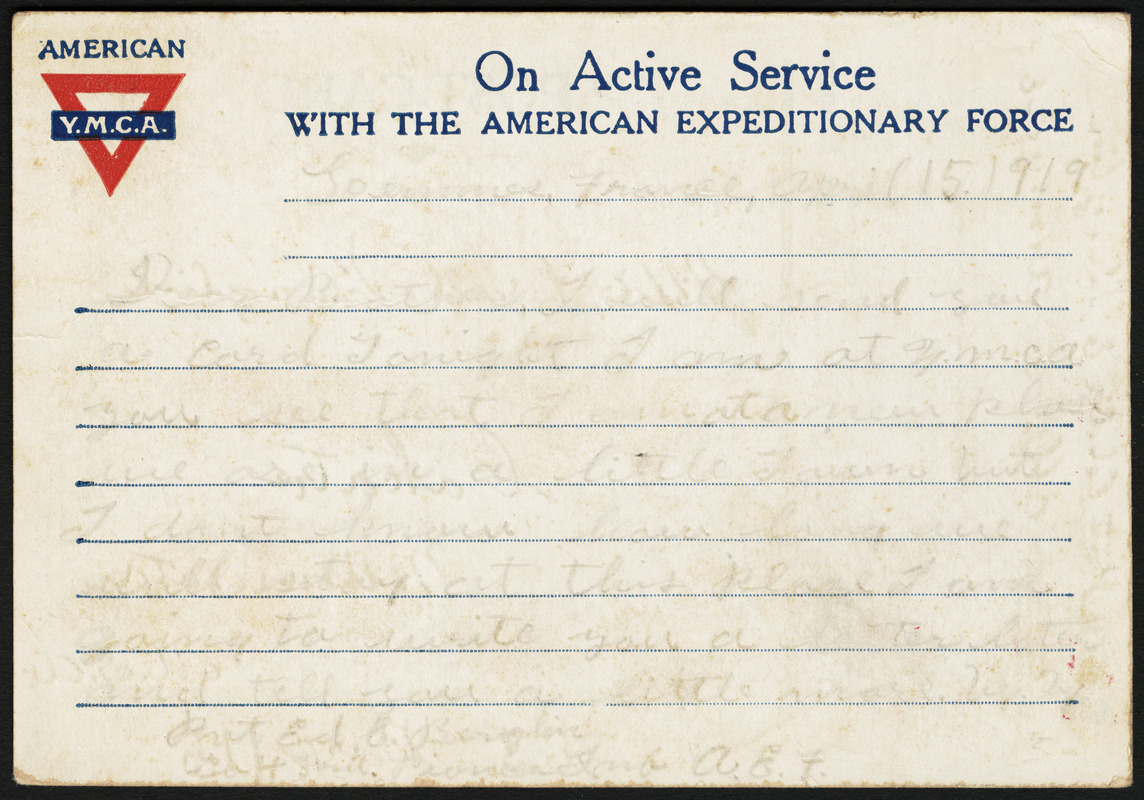 AMERICAN
Y.M.C.A.
On Active Service
WITH THE AMERICAN EXPEDITIONARY FORCE
France, April 15, 1919
Brother, I will send you
a card Tonight I am at Y.m.ca
you see that I am at a new place
we are in a little Town but
I dont know how long we
will stay at this place I am
going to write you a letter late
and tell you a little more.
Pvt Ed. E.
Co 4 3rd. Pioneer Inf A.E.F.